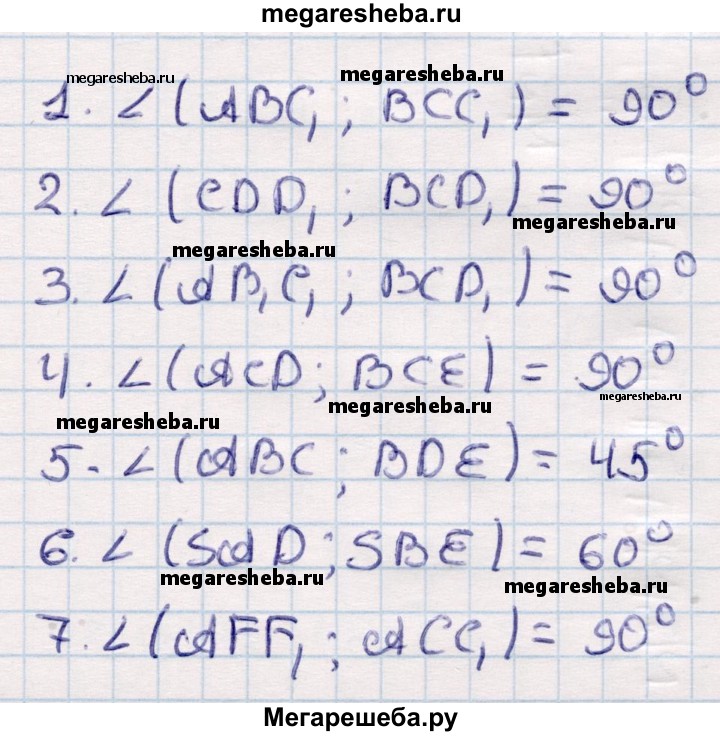 megaresheba.ru
megaresheba.ru
megaresheba.ru
1. ∠ (ABC₁ ; BCC₁) = 90°
2. ∠ (CDD₁ ; BCD₁) = 90°
megaresheba.ru
megaresheba.ru
3. ∠ (AB₁C₁ ; BCD₁) = 90°
4. ∠ (ACD ; BCE) = 90°
megaresheba.ru
megaresheba.ru
megaresheba.ru
5. ∠ (ABC ; BDE) = 45°
6. ∠ (SAD ; SBE) = 60°
megaresheba.ru
megaresheba.ru
7. ∠ (AFF₁ ; ACC₁) = 90°
Мегарешеба.ру